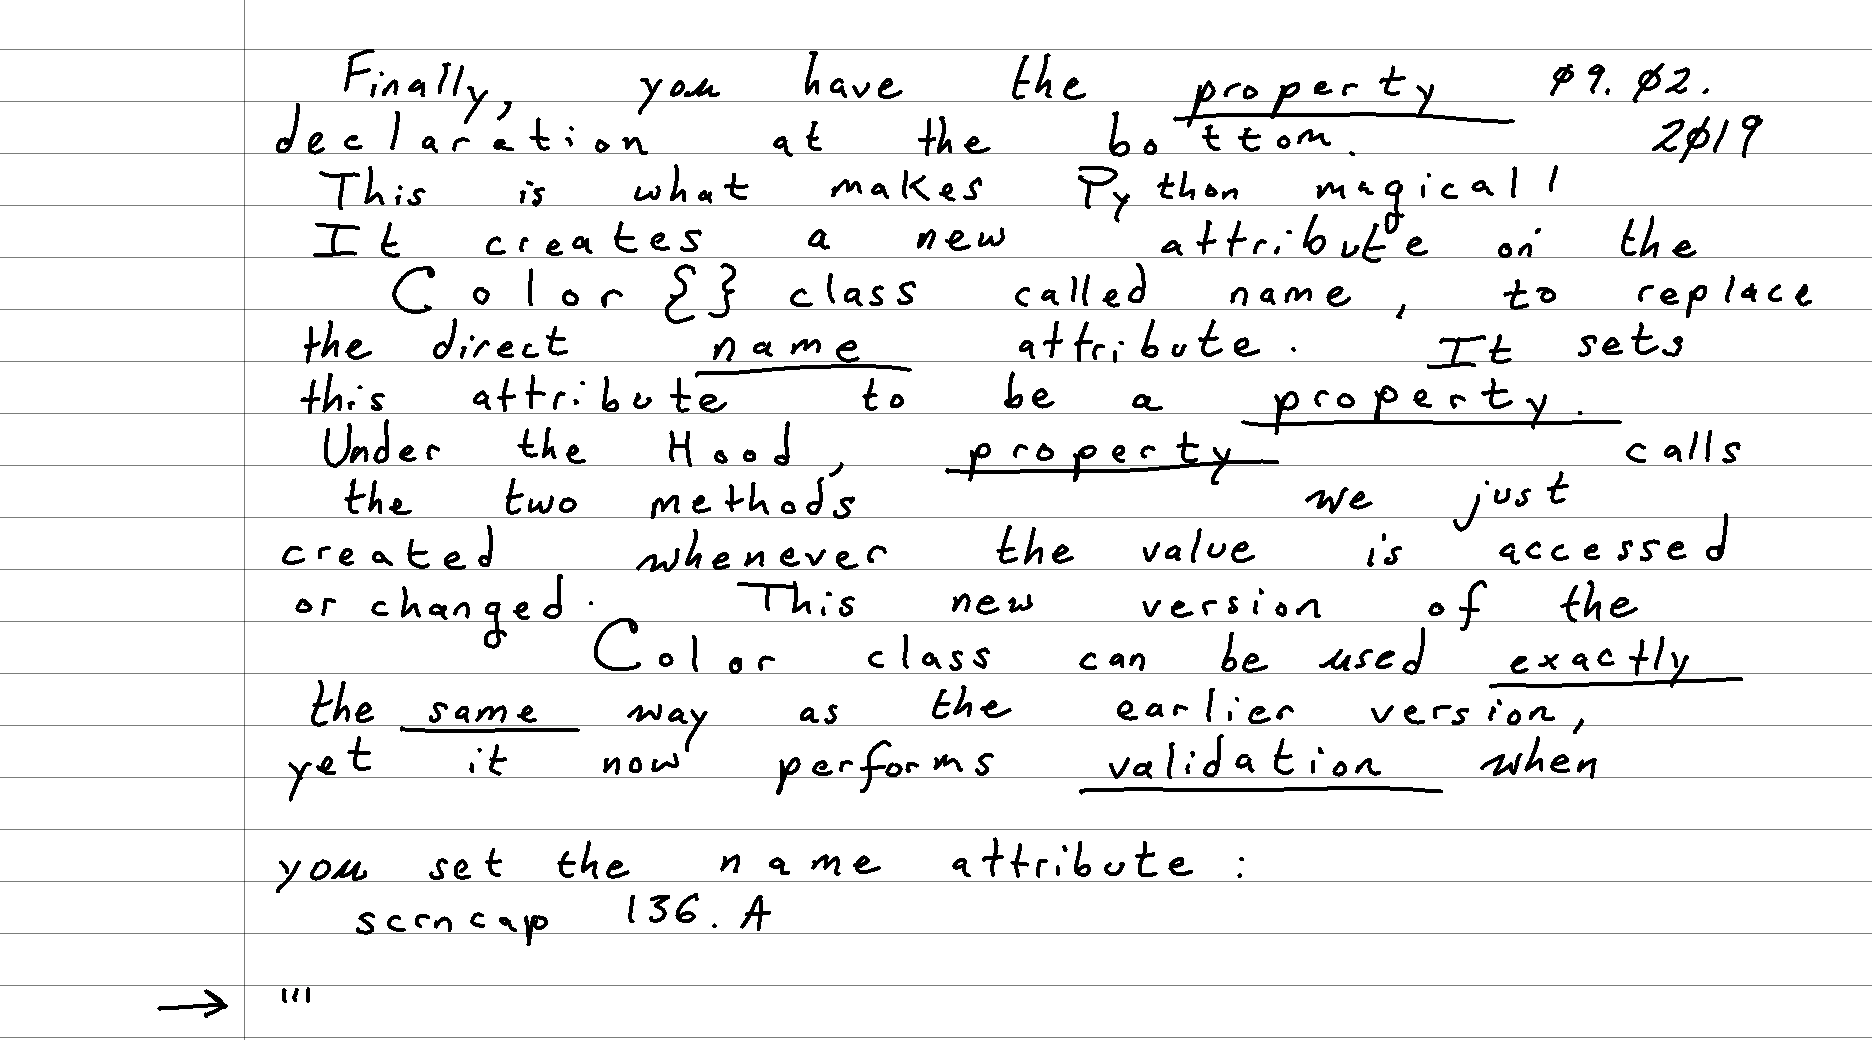 Finally, you have the property ø9. ø2.
declaration at the bottom. 2ø19
This is what makes Python magical!
It creates a new attribute on the
Color {} class called name, to replace
the direct name attribute. It sets
this attribute to be a property.
Under the Hood, property calls
the two methods we just
created whenever the value is accessed
or changed. This new version of the
Color class can be used exactly
the same way as the earlier version,
yet it now performs validation when
you set the name attribute:
scrncap 136.A
→ '''